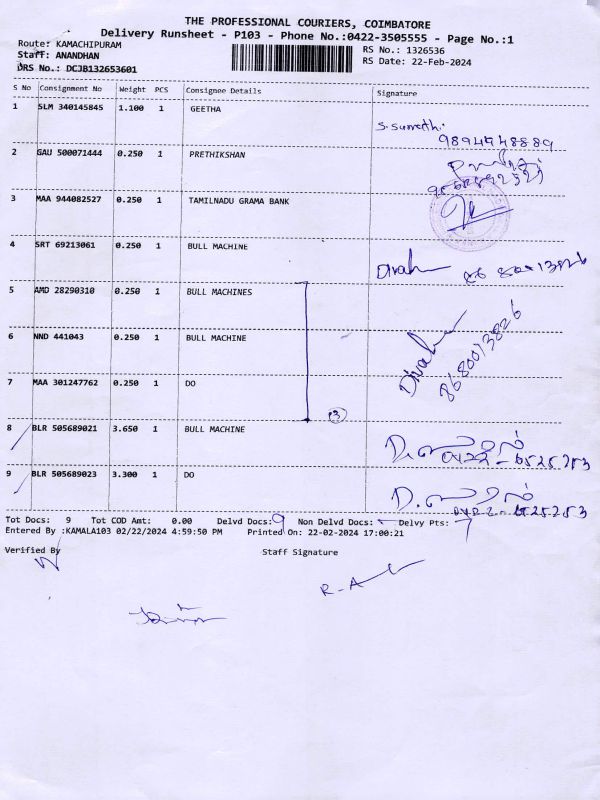 THE PROFESSIONAL COURIERS, COIMBATORE
Delivery Runsheet - P103 - Phone No.:0422-3505555 - Page No.:1
Route: KAMACHIPURAM
RS No.: 1326536
Staff: ANANDHAN
RS Date: 22-Feb-2024
DRS No.: DCJB132653601
S No Consignment No Weight PCS Consignee Details Signature
1 SLM 340145845 1.100 1 GEETHA
9894748889
2 GAU 500071444 0.250 1 PRETHIKSHAN
3 MAA 944082527 0.250 1 TAMILNADU GRAMA BANK
4 SRT 69213061 0.250 1 BULL MACHINE
5 AMD 28290310 0.250 1 BULL MACHINES
6 NND 441043 0.250 1 BULL MACHINE
8680013826
7 MAA 301247762 0.250 1 DO
3
8 BLR 505689021 3.650 1 BULL MACHINE
0422-6525253
9 BLR 505689023 3.300 1 DO
0422-6525253
Tot Docs: 9 Tot COD Amt: 0.00 Delvd Docs: 9 Non Delvd Docs: - Delvy Pts: 7
Entered By :KAMALA103 02/22/2024 4:59:50 PM Printed On: 22-02-2024 17:00:21
Verified By Staff Signature